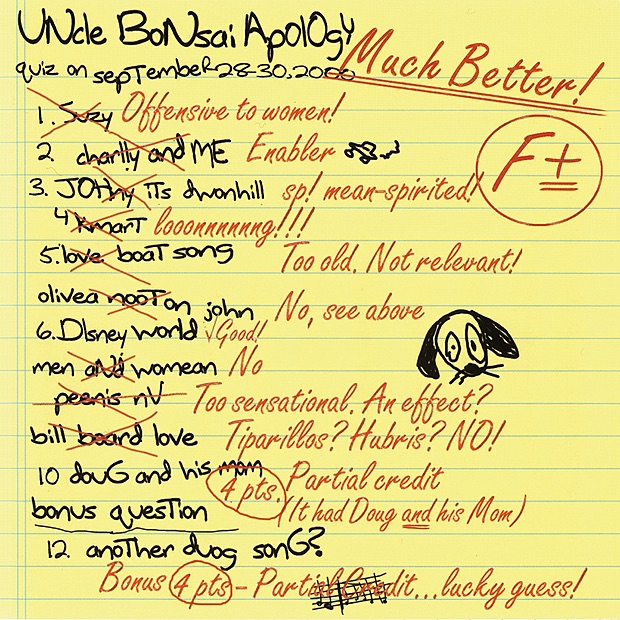 UNcle BoNsai ApolOgy
quiz on sepTembeR 28-30, 2000
Much Better!
F+
1. Suzy Offensive to women!
2 charlly and ME Enabler
3. JOHNy iTs dwonhill sp! mean-spirited!
4 KmarT looonnnnnng!!!
5. love boaT song Too old. Not relevant!
olivea nooTon john No, see above
6. DIsney world √Good!
men aNd womean No
peenis nV Too sensational. An effect?
bill beard love Tiparillos? Hubris? NO!
10 douG and his mom Partial credit
4 pts. (It had Doug and his Mom)
bonus question
12. anoTher duog sonG?
Bonus 4 pts - Partial Credit...lucky guess!